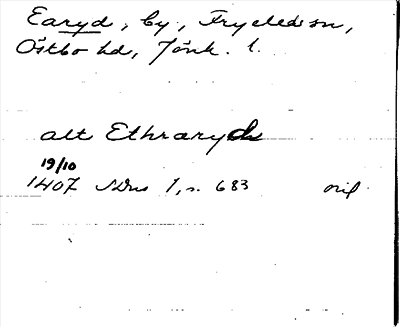 Earyd, by, Tryeleds sn,
Östbo hd, Jönk. l.
alt Ethraryds
19/10
1407 SDns 1, s. 683 orig.